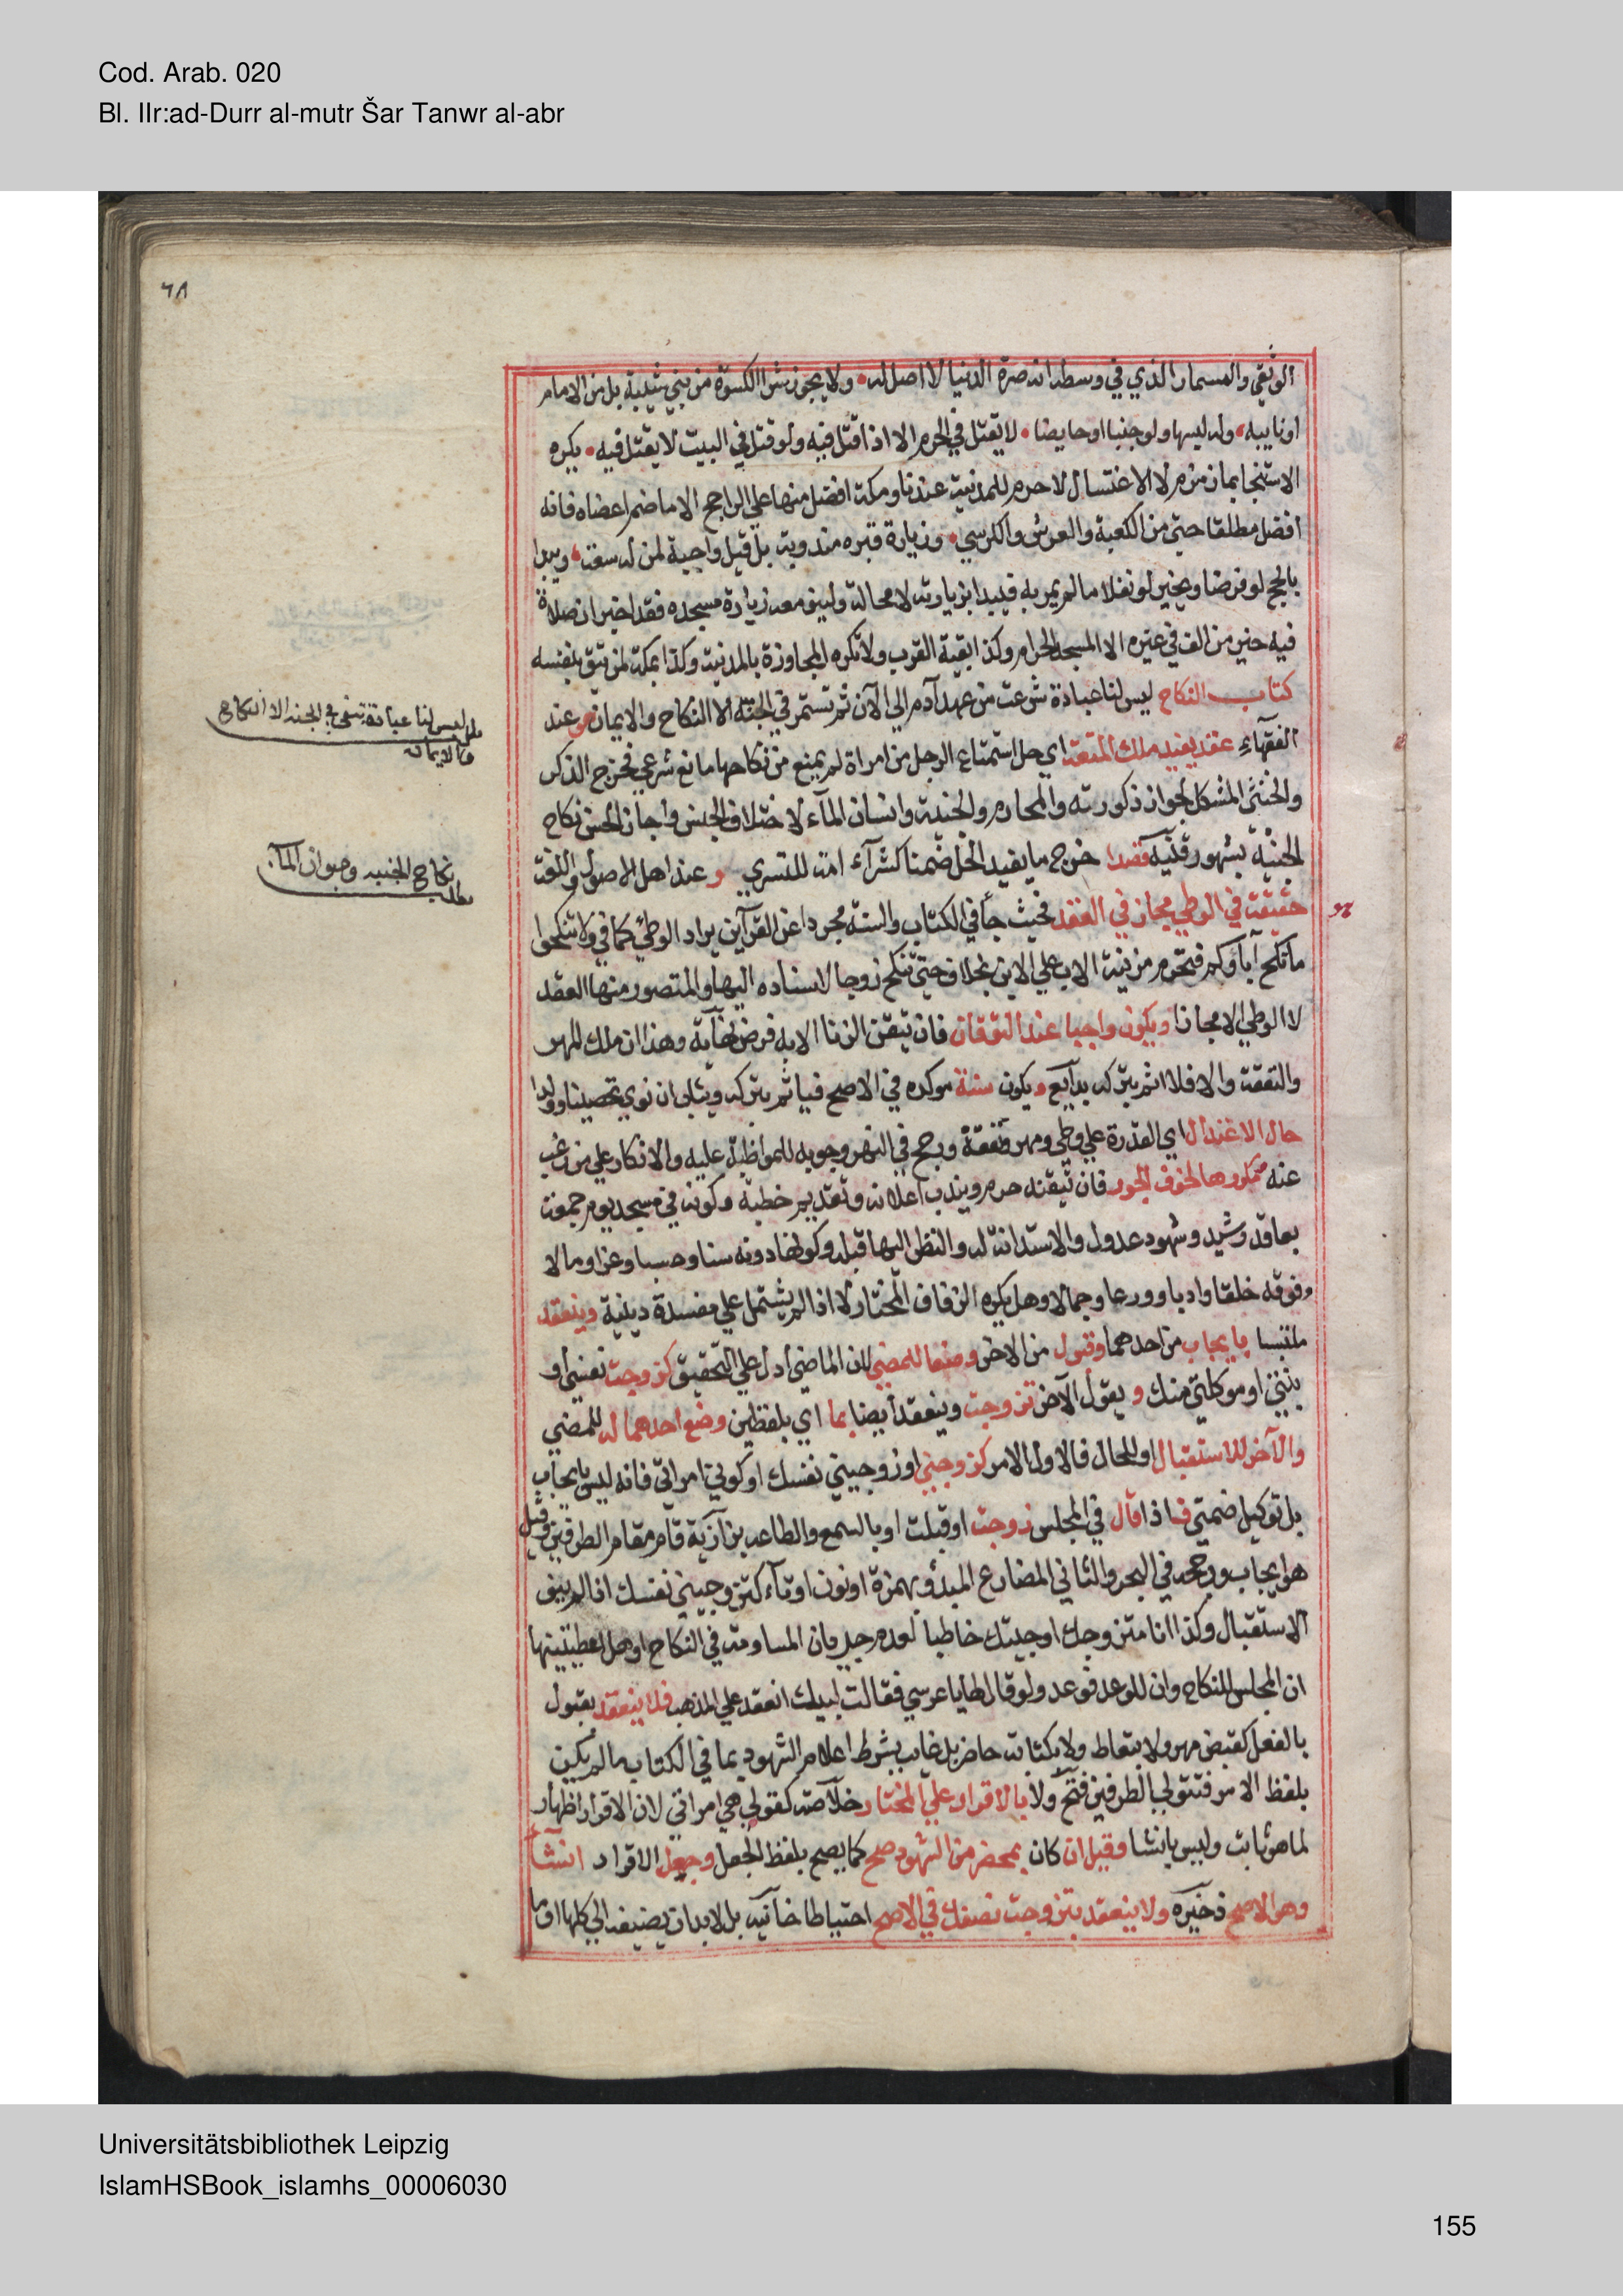 Cod. Arab. 020
Bl. IIr:ad-Durr al-mutr Šar Tanwr al-abr
٦٨
الوثقي والمسمار الذي في وسطه انه صرة الدنيا لا اصل له ولا يجوز شرا الكسوة من بني شيبة بل من الامام
او نايبه وله لبسها ولو جنبا او حايضا لا يقتل في الحرم الا اذا قتل فيه ولو قتل في البيت لا يقتل فيه يكره
الاستنجا بماء زمزم لا الاغتسال لا حرم للمدنية عندنا ومكة افضل منها علي الراجح الا ما ضم اعضاه فانه
افضل مطلقا حتي من الكعبة والعرش والكرسي وزيارة قبره مندوبة بل قيل واجبة لمن له سعة ويبدا
بالحج لو فرضا ويخير لو نفلا ما لم يمر به فليبدا بزيارته لا محالة ولينو معه زيارة مسجده فقد اخبر ان صلاة
فيه خير من الف في غيره الا المسجد الحرام وكذا بقية القرب ولا تكره المجاورة بالمدنية وكذا بمكة لمن يثق بنفسه
كتاب النكاح ليس لنا عبادة شرعت من عهد آدم الي الآن ثم تستمر في الجنة الا النكاح والايمان هو عند
الفقهاء عقد يفيد ملك المتعة اي حل استمتاع الرجل من امراة لم يمنع من نكاحها مانع شرعي فخرج الذكر
والخنثي المشكل لجواز ذكورته والمحارم والجنية وانسان المآء لاختلاف الجنس واجاز الحسن نكاح
الجنية بشهود قنية قصدا خرج ما يفيد الحل ضمنا كشرآء امة للتسري و عند اهل الاصول واللغة
حقيقة في الوطي مجاز في العقد فحيث جآ في الكتاب والسنة مجردا عن القرآين يراد الوطئ كما في ولا تنكحوا
ما نكح آباؤكم فتحرم مزنية الاب علي الابن بخلاف حتي تنكح زوجا لاسناده اليها والمتصور منها العقد
لا الوطي الا مجازا ويكون واجبا عند التوقان فان تيقن الزنا الا به فرض نهاية وهذا ان ملك المهر
والنفقة والا فلا اثم بتركه بدآيع ويكون سنة موكده في الاصح فياثم بتركه ويثاب ان نوي تحصينا وولدا
حال الاعتدال اي القدرة علي وطي ومهر ونفقة ورجح في النهر وجوبه للمواظبة عليه والانكار علي من رغب
عنه ومكروها لخوف الجور فان تيقنه حرم ويندب اعلانه وتقديم خطبة وكونه في مسجد يوم جمعة
بعاقد رشيد وشهود عدول والاستدانة له والنظر اليها قبله وكونها دونه سنا وحسبا وعزا ومالا
وفوقه خلقا وادبا وورعا وجمالا وهل يكره الزفاف المختار لا اذا لم يشتمل علي مفسدة دينية وينعقد
ملتبسا بايجاب من احدهما وقبول من الاخر وضعا للمضي لان الماضي ادل علي التحقيق كزوجت نفسي او
بنتي او موكلتي منك و يقول الآخر تزوجت وينعقد ايضا بما اي بلفظين وضع احدهما له للمضي
والآخر للاستقبال او للحال فالاول الامر كزوجني او زوجيني نفسك او كوني امراتي فانه ليس بايجاب
بل توكيل ضمني فاذا قال في المجلس زوجت او قبلت او بالسمع والطاعه بزازية قام مقام الطرفين وقيل
هو ايجاب ورجحه في البحر والثاني المضارع المبدؤ بهمزة او نون او تآء كتزوجيني نفسك اذا لم ينو
الاستقبال وكذا انا متزوجك او جيتك خاطبا لعدم جريان المساومة في النكاح او هل اعطيتنيها
ان المجلس للنكاح وان للوعد فوعد ولو قال لها يا عرسي فقالت لبيك انعقد علي المذهب فلا ينعقد بقبول
بالفعل كقبض مهر ولا بتعاط ولا بكتابة حاضر بل غايب بشرط اعلام الشهود بما في الكتاب ما لم يكن
بلفظ الامر فتتولي الطرفين فتح ولا بالاقرار علي المختار خلاصة كقوله هي امراتي لان الاقرار اظهار
لما هو ثابت وليس بانشا وقيل ان كان بمحضر من الشهود صح كما يصح بلفظ الجعل وجعل الاقرار انشآ
وهو الاصح ذخيره ولا ينعقد بتزوجت نصفك في الاصح احتياطا خانيه بل لا بد ان يضيفه الي كلها او ما
مطلب ليس لنا عبادة تبقي في الجنه الا النكاح
والايمان
نكاح الجنيه وحيوان المآ
مطلب
Universitätsbibliothek Leipzig
IslamHSBook_islamhs_00006030
155